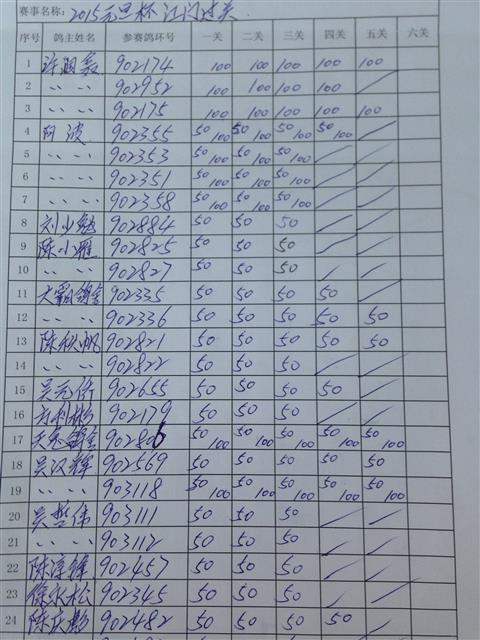 赛事名称: 2015元旦杯 江门过关
序号 鸽主姓名 参赛鸽环号 一关 二关 三关 四关 五关 六关
1 902174 100 100 100 100 100
2 〃 〃 902952 100 100 100 100
3 〃 〃 902175 100 100 100 100 100
4 阿波 902355 50/100 50/100 50/100 50/100
5 〃 〃 902353 50/100 50/100 50/100
6 〃 〃 902351 50/100 50/100 50/100
7 〃 〃 902358 50/100 50/100 50/100
8 902884 50 50 50
9 陈小雁 902825 50 50 50
10 〃 〃 902827 50 50 50
11 902335 50 50 50 50
12 〃 〃 902336 50 50 50 50 50
13 陈秋帆 902821 50 50 50 50 50
14 〃 〃 902822 50 50 50
15 902655 50 50 50 50
16 902179 50 50 50
17 902806 50/100 50/100 50/100 50/100 50/100
18 吴汉辉 902569 50 50 50 50 50
19 〃 〃 903118 50/100 50/100 50/100 50/100 50/100
20 吴哲伟 903111 50 50 50
21 〃 〃 903112 50 50 50
22 陈淳锋 902457 50 50 50
23 徐永松 902345 50 50 50
24 902482 50 50 50 50